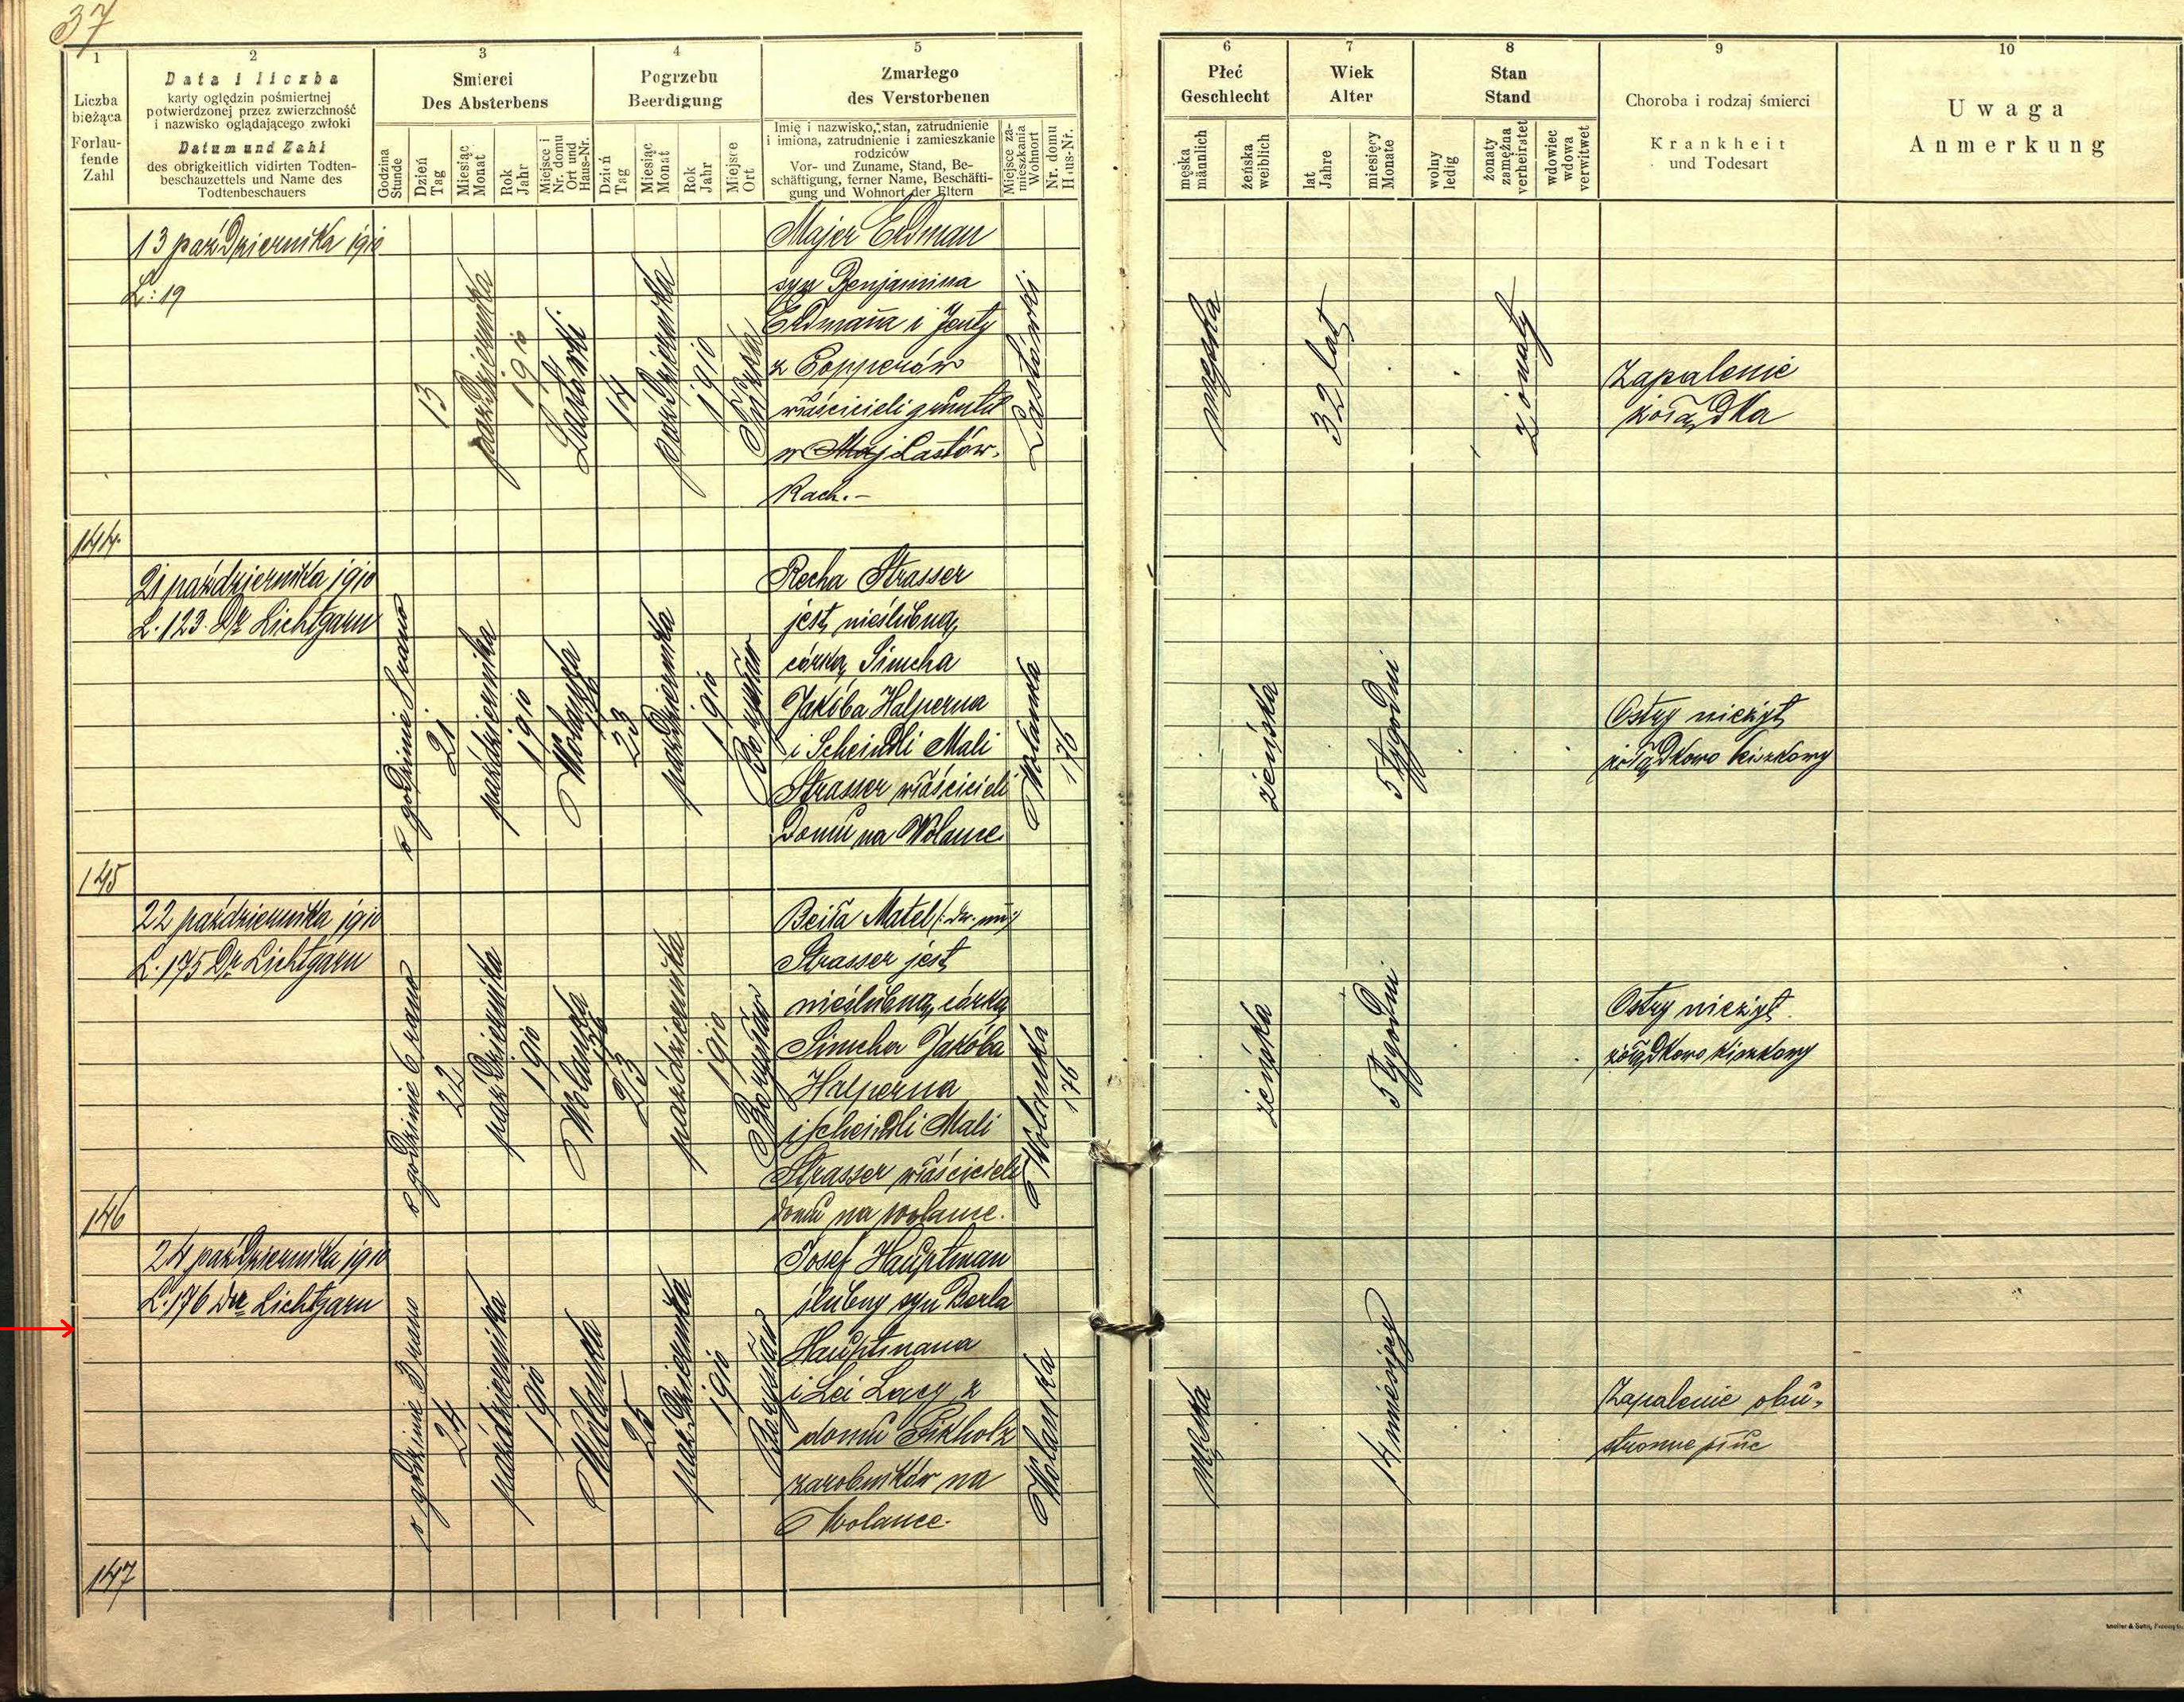 37
1
Liczba
bieżąca
Forlau-
fende
Zahl
2
Data i liczba
karty oględzin pośmiertnej
potwierdzonej przez zwierzchność
i nazwisko oglądającego zwłoki
Datum und Zahl
des obrigkeitlich vidirten Todten-
beschauzettels und Name des
Todtenbeschauers
3
Smierci
Des Absterbens
Godzina
Stunde
Dzień
Tag
Miesiąc
Monat
Rok
Jahr
Miejsce i
Nr. domu
Ort und
Haus-Nr.
4
Pogrzebu
Beerdigung
Dzień
Tag
Miesiąc
Monat
Rok
Jahr
Miejsce
Ort
5
Zmarłego
des Verstorbenen
Imię i nazwisko, stan, zatrudnienie
i imiona, zatrudnienie i zamieszkanie
rodziców
Vor- und Zuname, Stand, Be-
schäftigung, ferner Name, Beschäfti-
gung und Wohnort der Eltern
Miejsce za-
mieszkania
Wohnort
Nr. domu
Haus-Nr.
6
Płeć
Geschlecht
męska
männlich
żeńska
weiblich
7
Wiek
Alter
lat
Jahre
miesięcy
Monate
8
Stan
Stand
wolny
ledig
żonaty
zamężna
verheiratet
wdowiec
wdowa
verwitwet
9
Choroba i rodzaj śmierci
Krankheit
und Todesart
10
Uwaga
Anmerkung
144.
13 października 1910
L: 19
13
października
1910
Lastówki
14
października
1910
Majer Erdman
syn Benjamina
Erdmana i Jenty
z Popperów
właścicieli gruntu
w Maj Lastów-
kach.-
Lastówki
męska
32 lat
żonaty
Zapalenie
żołądka
145
21 października 1910
L. 123 Dr Lichtgarn
21
października
1910
Wolanka
176
23
października
1910
Borysław
Recha Strasser
jest nieślubną
córką Simcha
Jakóba Halperna
i Scheindli Mali
Strasser właścicieli
domu na Wolance.
Wolanka
176
żeńska
5 tygodni
Ostry nieżyt
żołądkowo kiszkowy
146
22 października 1910
L. 175 Dr Lichtgarn
o godzinie 6 rano
22
października
1910
Wolanka
176
23
października
1910
Borysław
Beila Matel (: dw. im:)
Strasser jest
nieślubną córką
Simcha Jakóba
Halperna
i Scheindli Mali
Strasser właścicieli
domu na wolance.
Wolanka
176
żeńska
5 tygodni
Ostry nieżyt
żołądkowo kiszkowy
147
24 października 1910
L. 176 Dr Lichtgarn
o godzinie 3 rano
24
października
1910
Wolanka
25
października
1910
Borysław
Josef Hauptman
ślubny syn Berla
Hauptmana
i Lei Lacy z
domu Pikholz
zarobników na
Wolance.
Wolanka
męska
14 miesięcy
Zapalenie obu-
stronne płuc